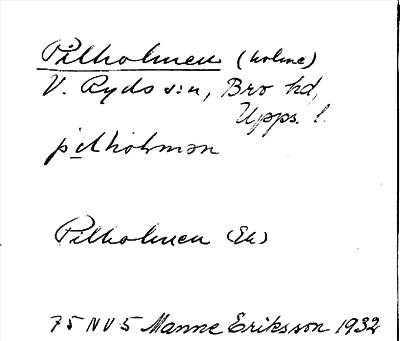 Pilholmen (holme)
V. Ryds s:n, Bro hd,
Upps. l.
pilholmən
Pilholmen (Ek)
75 NV 5 Manne Eriksson 1932